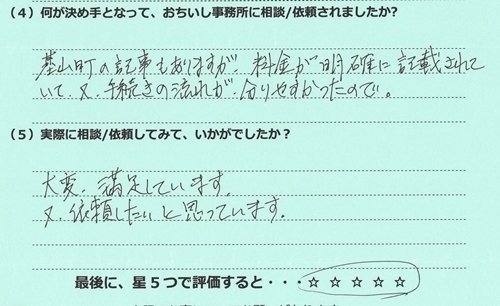 （４）何が決め手となって、おちいし事務所に相談/依頼されましたか？
基山町の記事もありますが、料金が明確に記載されて
いて、又、手続きの流れが、分りやすかったので。
（５）実際に相談/依頼してみて、いかがでしたか？
大変、満足しています。
又、依頼したいと思っています。
最後に、星５つで評価すると・・・☆ ☆ ☆ ☆ ☆